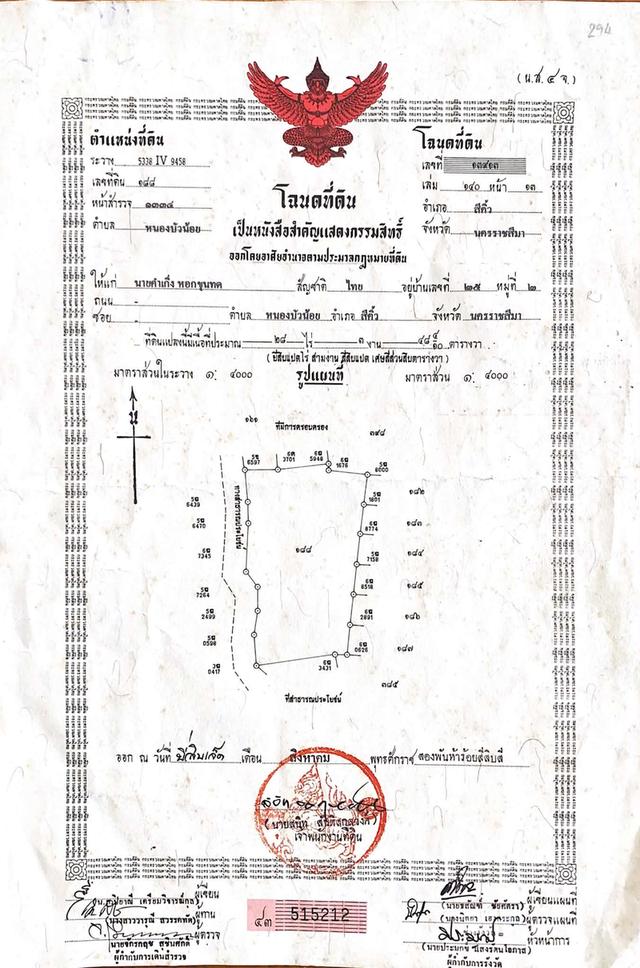 294
(น.ส. ๔ จ.)
ตำแหน่งที่ดิน
ระวาง 5338 IV 9458
เลขที่ดิน ๑๘๘
หน้าสำรวจ ๑๓๓๔
ตำบล หนองบัวน้อย
โฉนดที่ดิน
เลขที่ ๑๓๙๑๓
เล่ม ๑๔๐ หน้า ๑๓
อำเภอ สีคิ้ว
จังหวัด นครราชสีมา
โฉนดที่ดิน
เป็นหนังสือสำคัญแสดงกรรมสิทธิ์
ออกโดยอาศัยอำนาจตามประมวลกฎหมายที่ดิน
ให้แก่ นายคำเก็ง หอกขุนทด สัญชาติ ไทย อยู่บ้านเลขที่ ๒๕ หมู่ที่ ๒
ถนน -
ซอย - ตำบล หนองบัวน้อย อำเภอ สีคิ้ว จังหวัด นครราชสีมา
ที่ดินแปลงนี้มีเนื้อที่ประมาณ ๒๘ ไร่ ๓ งาน ๔๘ ๔/๑๐ ตารางวา
(ยี่สิบแปดไร่ สามงาน สี่สิบแปด เศษสี่ส่วนสิบตารางวา)
มาตราส่วนในระวาง ๑: ๔๐๐๐ รูปแผนที่ มาตราส่วน ๑: ๔๐๐๐
น
๑๖๑
ที่มีการครอบครอง
๓๙๘
5ข 6597
6ค 3701
6ข 5948
6ข 1676
5ข 8000
5ข 6439
5ข 1801
๑๘๒
5ข 6470
ทางสาธารณประโยชน์
6ข 8774
๑๘๓
5ข 7345
๑๘๘
5ข 7158
๑๘๔
5ข 7264
6ข 8518
๑๘๕
5ข 2499
6ข 2891
๑๘๖
5ข 0598
6ข 0626
๑๘๗
3ข 0417
6ข 3431
๓๘๕
ที่สาธารณประโยชน์
ออก ณ วันที่ ยี่สิบเอ็ด เดือน สิงหาคม พุทธศักราช สองพันห้าร้อยสี่สิบสี่
เจ้าพนักงานที่ดิน
ผู้เขียน
ผู้ทาน
ผู้ตรวจ
ผู้กำกับการเดินสำรวจ
๔๓ 515212
ผู้เขียนแผนที่
ผู้ตรวจแผนที่
หัวหน้าการ
ผู้กำกับการรังวัด